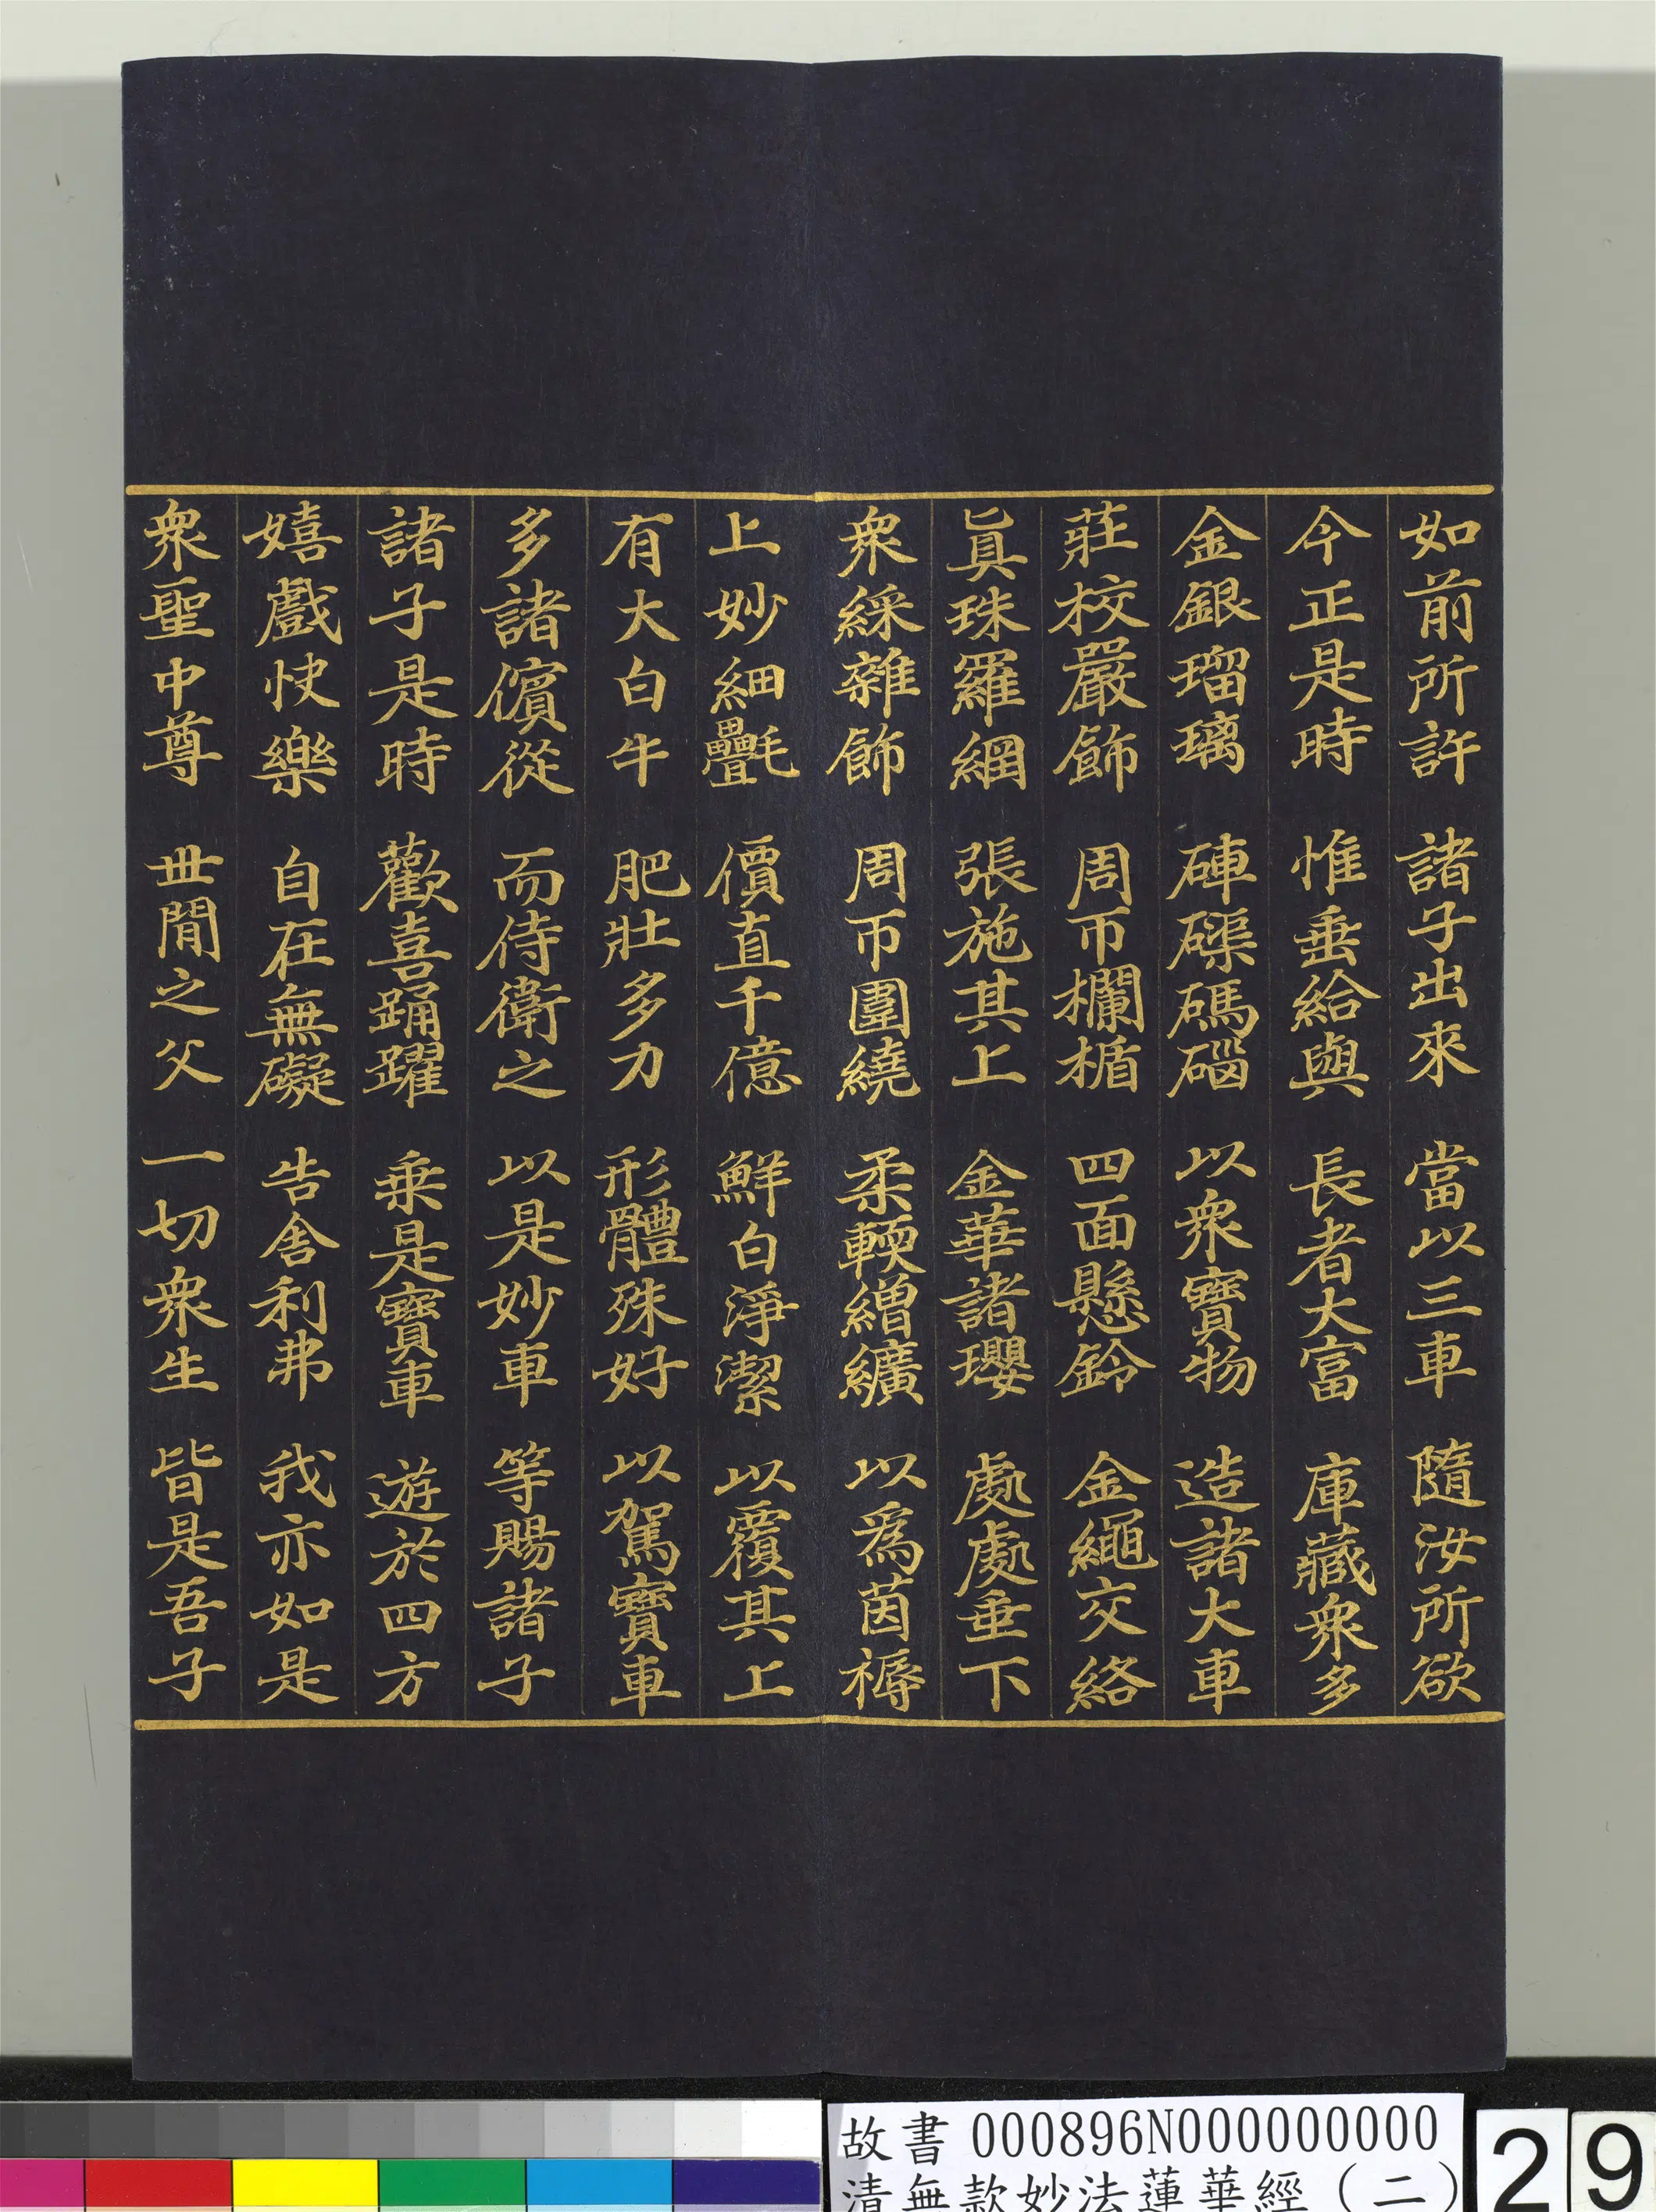 如前所許 諸子出來 當以三車 隨汝所欲
今正是時 惟垂給與 長者大富 庫藏衆多
金銀瑠璃 硨磲碼碯 以衆寶物 造諸大車
莊校嚴飾 周帀欄楯 四面懸鈴 金繩交絡
眞珠羅網 張施其上 金華諸瓔 處處垂下
衆綵雜飾 周帀圍繞 柔輭繒纊 以爲茵褥
上妙細㲲 價直千億 鮮白淨潔 以覆其上
有大白牛 肥壯多力 形體殊好 以駕寶車
多諸儐從 而侍衛之 以是妙車 等賜諸子
諸子是時 歡喜踊躍 乘是寶車 遊於四方
嬉戲快樂 自在無礙 告舍利弗 我亦如是
衆聖中尊 世間之父 一切衆生 皆是吾子
故書 000896N000000000
清無款妙法蓮華經（二）
29